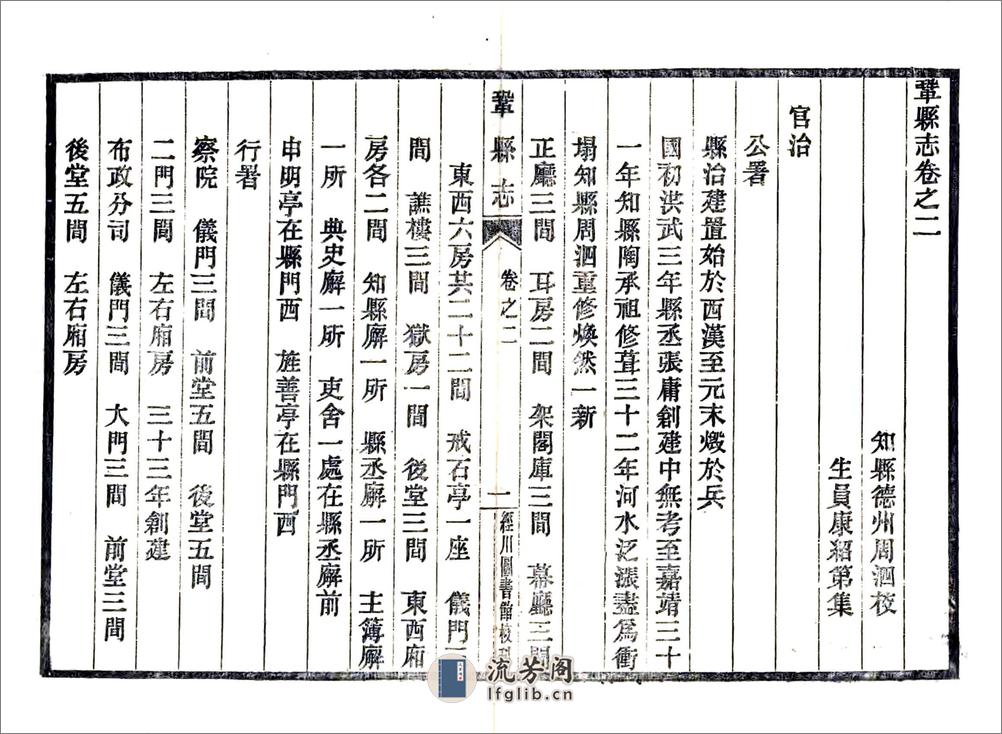 鞏縣志卷之二
知縣德州周泗校
生員康紹第集
官治
公署
縣治建置始於西漢至元末燬於兵
國初洪武三年縣丞張庸創建中無考至嘉靖三十
一年知縣陶承祖修葺三十二年河水泛漲盡爲衝
塌知縣周泗重修煥然一新
正廳三間 耳房二間 架閣庫三間 幕廳三間
鞏縣志 卷之二 一 經川圖書館校刊
東西六房共二十二間 戒石亭一座 儀門三
間 譙樓三間 獄房一間 後堂三間 東西廂
房各二間 知縣廨一所 縣丞廨一所 主簿廨
一所 典史廨一所 吏舍一處在縣丞廨前
申明亭在縣門西 旌善亭在縣門西
行署
察院 儀門三間 前堂五間 後堂五間
二門三間 左右廂房 三十三年創建
布政分司 儀門三間 大門三間 前堂三間
後堂五間 左右廂房
流芳阁
lfglib.cn